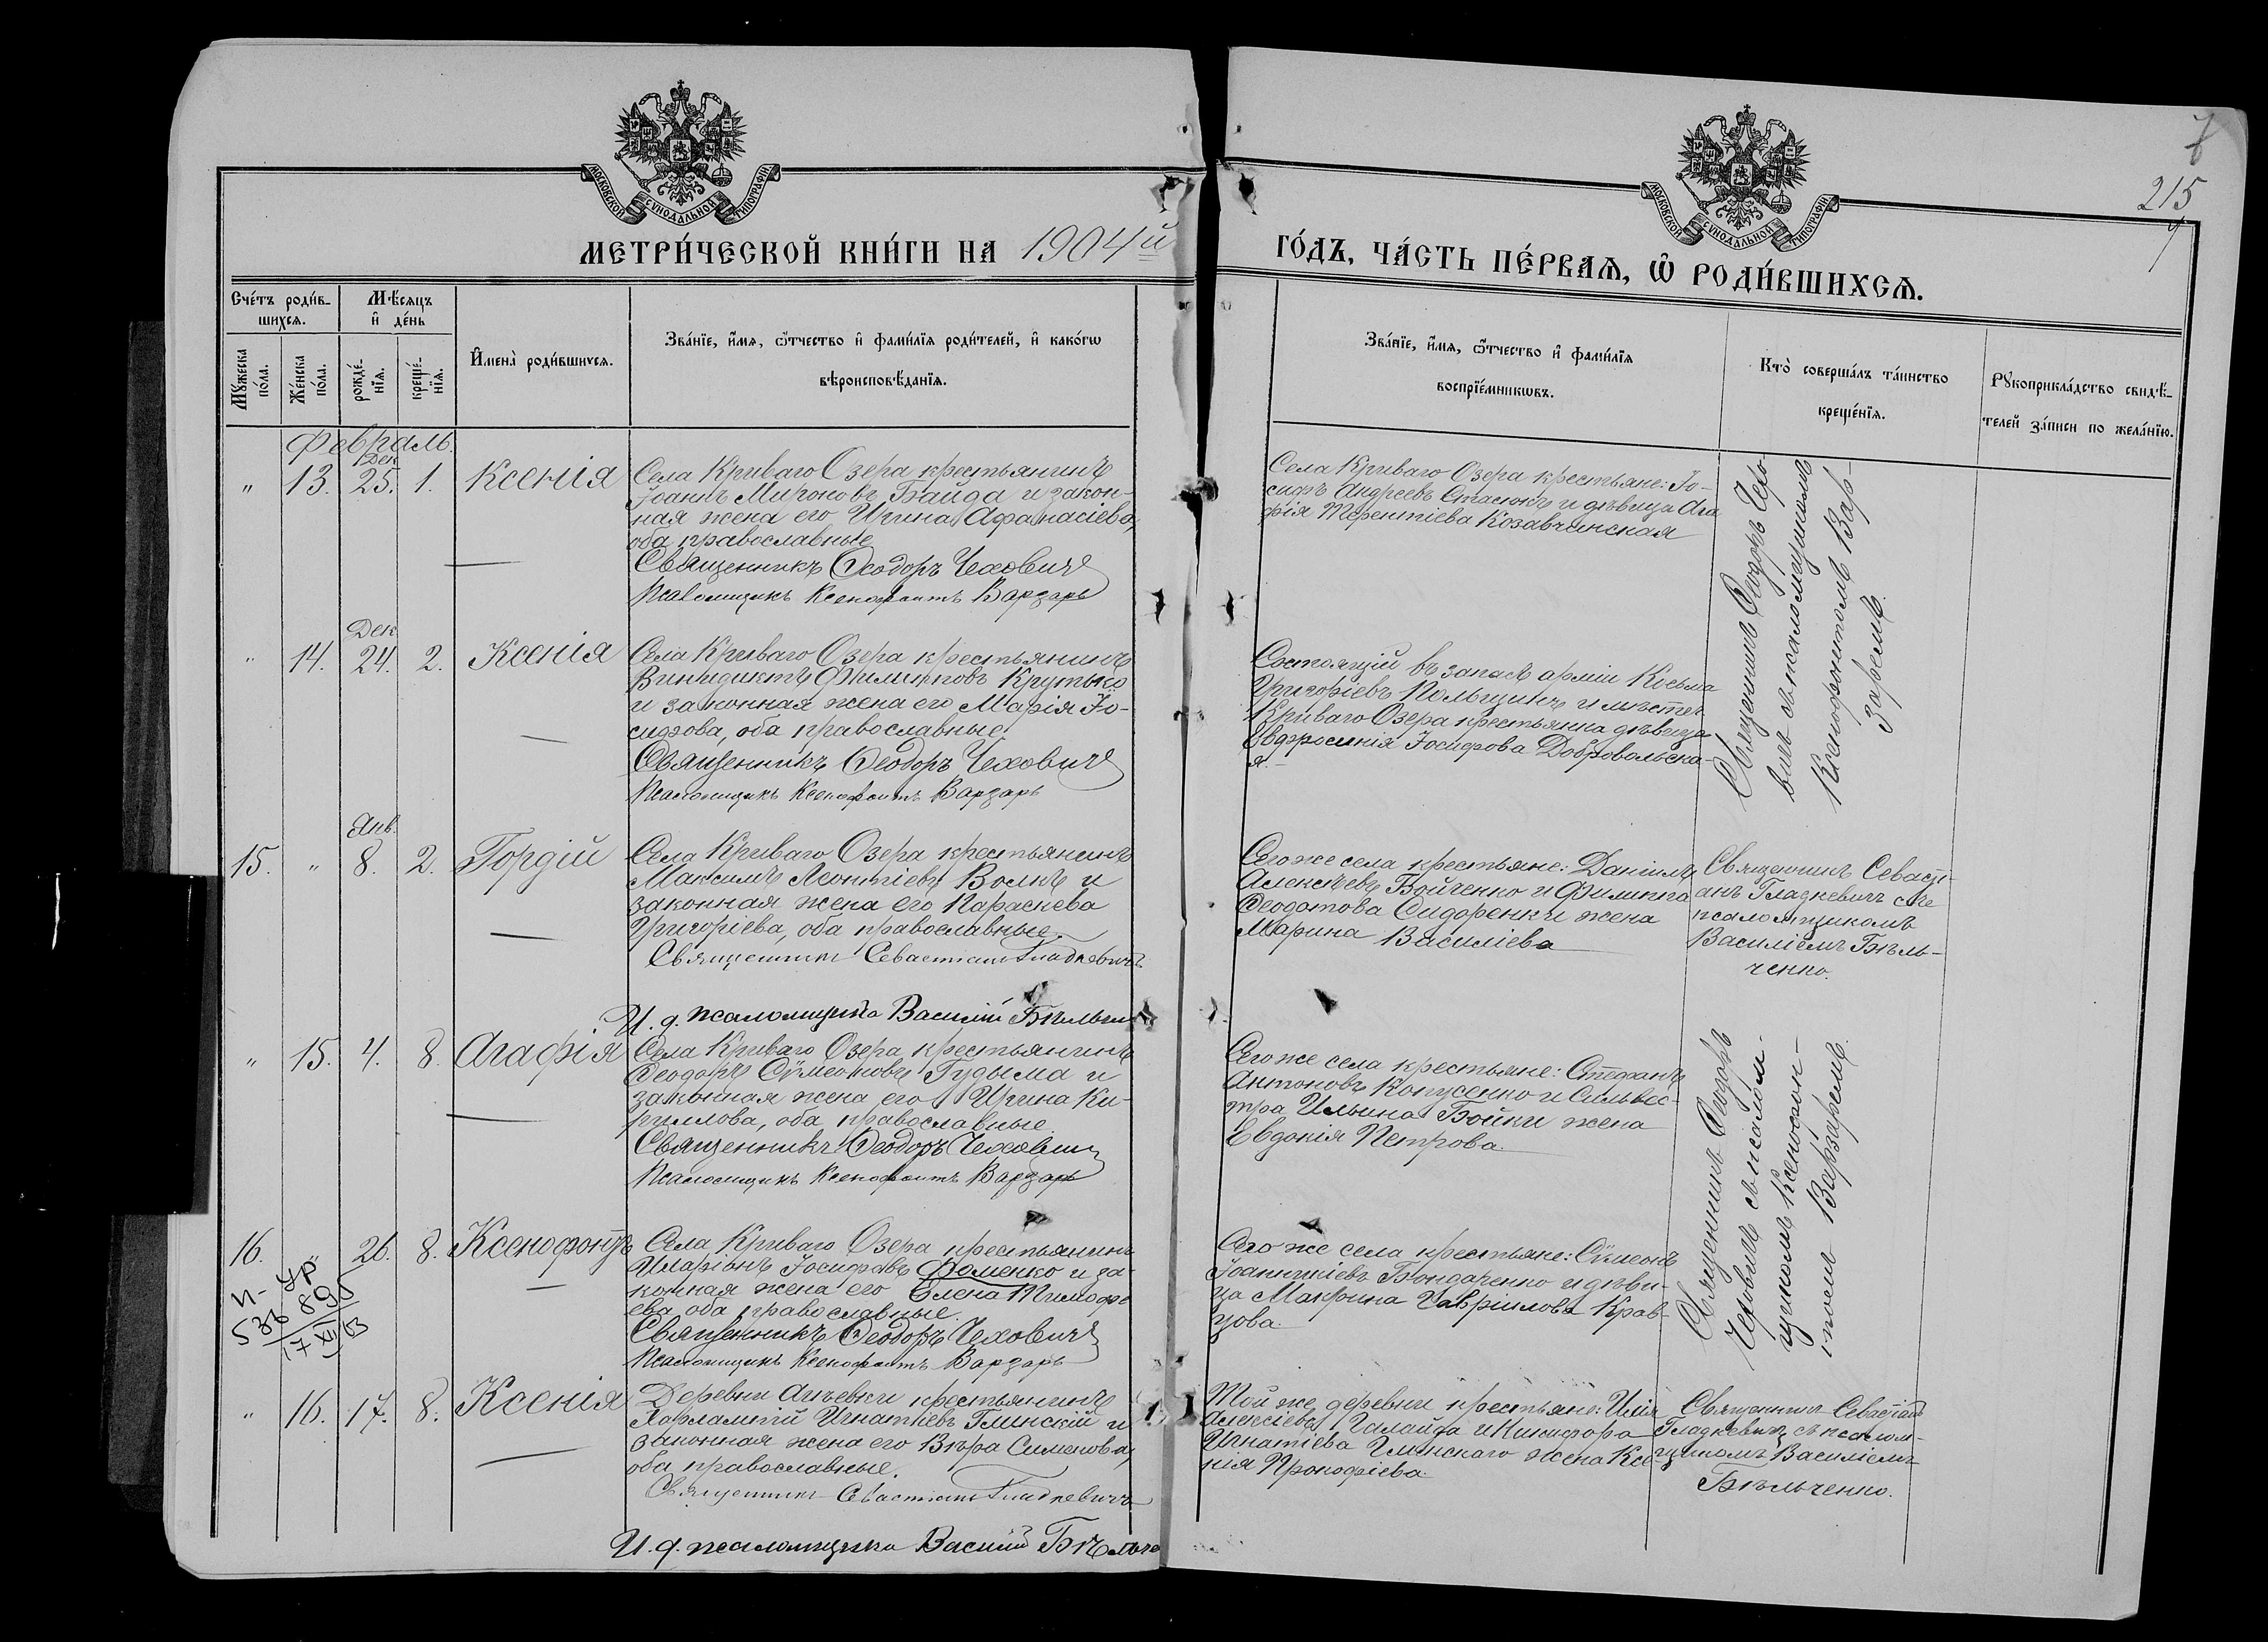 7
215
МОСКОВСКОЙ СѴНОДАЛЬНОЙ ТИПОГРАФІИ
МОСКОВСКОЙ СѴНОДАЛЬНОЙ ТИПОГРАФІИ
МЕТРИ́ЧЕСКОЙ КНИ́ГИ НА 1904й
ГО́ДЪ, ЧА́СТЬ ПЕ́РВАѦ, Ѡ҆ РОДИ́ВШИХСѦ.
Сче́тъ роди́в-
шихсѧ.
Мѣ́сѧцъ
и҆ де́нь
Мꙋ́жеска
по́ла.
Же́нска
по́ла.
рожде́-
нїѧ.
креще́-
нїѧ.
И҆мена̀ роди́вшихсѧ.
Зва́нїе, и҆́мѧ, ѻ҆́тчество и҆ фами́лїѧ роди́телей, и҆ како́гѡ
вѣроисповѣ́данїѧ.
Зва́нїе, и҆́мѧ, ѻ҆́тчество и҆ фами́лїѧ
воспрїе́мникѡвъ.
Кто̀ соверша́лъ та́инство
креще́нїѧ.
Рꙋкоприкла́дство свидѣ́-
телей за́писи по жела́нїю.
Февраль.
" 13. Дек. 25. 1. Ксенія
Села Криваго Озера крестьянинъ
Іоаннъ Мироновъ Байда и закон-
ная жена его Ирина Афанасіева,
оба православные
Священникъ Ѳеодоръ Чеховичъ
Псаломщикъ Ксенофонтъ Варзарь
Села Криваго Озера крестьяне: Іо-
сифъ Андреевъ Стасюкъ и дѣвица Ага
фія Терентіева Козавчинская
Священникъ Ѳеодоръ Чехо-
вичъ съ псаломщикомъ
Ксенофонтомъ Вар-
заремъ.
" 14. Дек. 24. 2. Ксенія
Села Криваго Озера крестьянинъ
Винидиктъ Филипповъ Крутько
и законная жена его Марія Іо-
сифова, оба православные
Священникъ Ѳеодоръ Чеховичъ
Псаломщикъ Ксенофонтъ Варзарь
Состоящій въ запасѣ арміи Косьма
Григоріевъ Польщикъ и мѣстеч.
Криваго Озера крестьянка дѣвица
Евфросинія Іосифова Добровольска-
я.
15. " Янв. 8. 2. Гордій
Села Криваго Озера крестьянинъ
Максимъ Леонтіевъ Волкъ и
законная жена его Параскева
Григоріева, оба православные.
Священникъ Севастіанъ Гладкевичъ
И. д. псаломщика Василій Бѣльчен
Того же села крестьяне: Даніилъ
Алексѣевъ Бойченко и Филиппа
Ѳеодотова Сидоренки жена
Марина Василіева
Священникъ Севасті-
анъ Гладкевичъ съ
псаломщикомъ
Василіемъ Бѣль-
ченко.
" 15. 4. 8. Агафія
Села Криваго Озера крестьянинъ
Ѳеодоръ Сѵмеоновъ Гудыма и
законная жена его Ирина Ки-
риллова, оба православные.
Священникъ Ѳеодоръ Чеховичъ
Псаломщикъ Ксенофонтъ Варзарь
Того же села крестьяне: Стефанъ
Антоновъ Копусенко и Сильвес-
тра Ильина Бойки жена
Евдокія Петрова.
Священникъ Ѳеодоръ
Чеховичъ съ псалом-
щикомъ Ксенофон-
томъ Варзаремъ.
16. " 26. 8. Ксенофонтъ
Села Криваго Озера крестьянинъ
Иларіонъ Іосифовъ Фоменко и за-
конная жена его Елена Тимофе
ева, оба православные.
Священникъ Ѳеодоръ Чеховичъ
Псаломщикъ Ксенофонтъ Варзарь
Того же села крестьяне: Сѵмеонъ
Іоанникіевъ Бондаренко и дѣви-
ца Макрина Гавріилова Крав-
цова.
" 16. 17. 8. Ксенія
Деревни Антьевки крестьянинъ
Харлампій Игнатіевъ Глинскій и
законная жена его Вѣра Сименова,
оба православные.
Священникъ Севастіанъ Гладкевичъ
И. д. псаломщика Василій Бѣльче
Той же деревни крестьяне: Илія
Алексіевъ Галайда и Никифора
Игнатіева Глинскаго жена Ксе-
нія Прокофіева.
Священникъ Севастіанъ
Гладкевичъ съ псалом-
щикомъ Василіемъ
Бѣльченко.